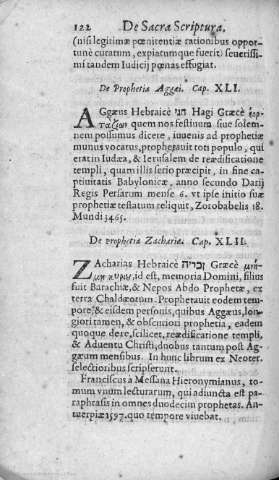 122 De Sacra Scriptura,
(nisi legitimæ pœnitentiæ rationibus oppor-
tunè curatum, expiatumque fuerit) seuerissi-
mi tandem Iudicij pœnas effugiat.
De Prophetia Aggæi. Cap. XLI.
AGgæus Hebraicè חגי Hagi Græcè
quem nos festiuum siue solem-
nem possumus dicere, iuuenis ad prophetiæ
munus vocatus, prophetauit toti populo, qui
erat in Iudæa, & Ierusalem de reædificatione
templi, quam illis serio præcipit, in fine ca-
ptiuitatis Babylonicæ, anno secundo Darij
Regis Persarum mense 6. vt ipse initio suæ
prophetiæ testatum reliquit, Zorobabelis 18.
Mundi 3465.
De prophetia Zachariæ. Cap. XLII.
ZAcharias Hebraicè זכריה Græcè
id est, memoria Domini, filius
fuit Barachiæ, & Nepos Abdo Prophetæ, ex
terra Chaldæorum. Prophetauit eodem tem-
pore, & eisdem personis, quibus Aggæus, lon-
giori tamen, & obscuriori prophetia, eadem
quoque de re, scilicet, reædificatione templi,
& Aduentu Christi, duobus tantum post Ag-
gæum mensibus. In hunc librum ex Neoter.
selectioribus scripserunt.
Franciscus à Messana Hieronymianus, to-
mum vnum lecturarum, qui adiuncta est pa-
raphrasis in omnes duodecim prophetas. An-
tuerpiæ 1597. quo tempore viuebat.